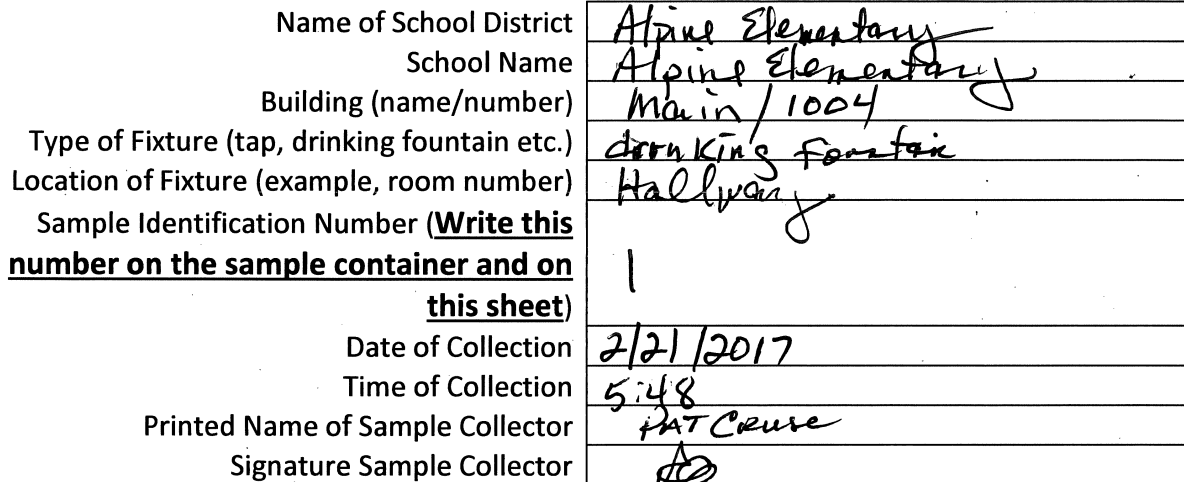 Name of School District Alpine Elementary
School Name Alpine Elementary
Building (name/number) Main/1004
Type of Fixture (tap, drinking fountain etc.) drinking Fountain
Location of Fixture (example, room number) Hallway
Sample Identification Number (Write this
number on the sample container and on 1
this sheet)
Date of Collection 2/21/2017
Time of Collection 5:48
Printed Name of Sample Collector PAT Cruse
Signature Sample Collector